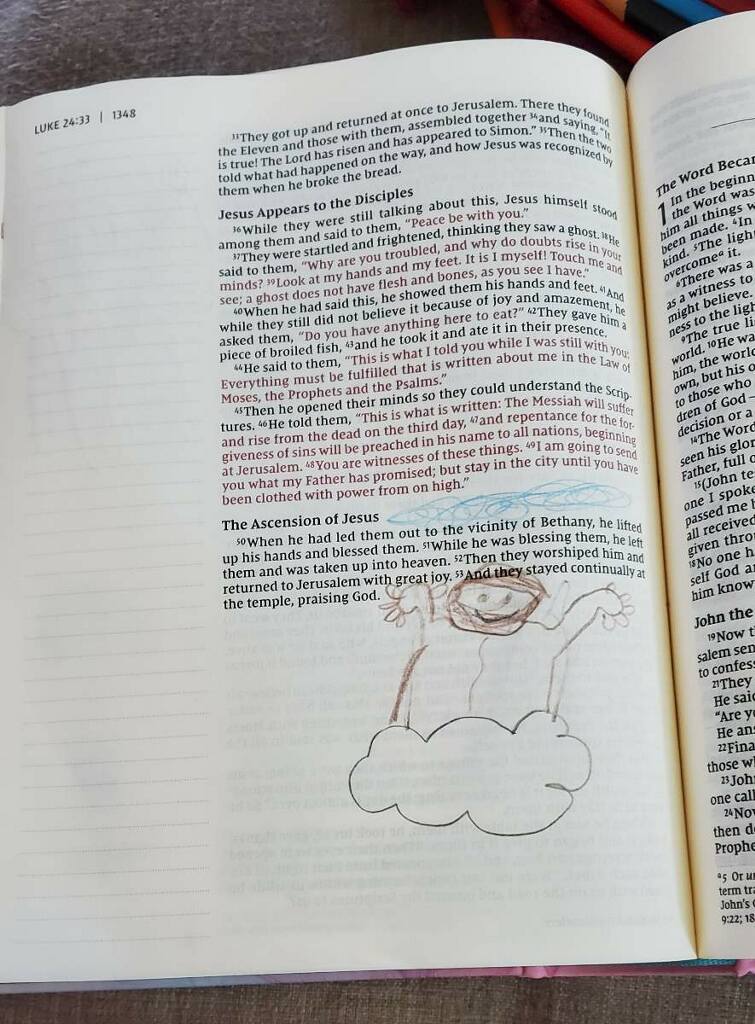 LUKE 24:33 | 1348
³³They got up and returned at once to Jerusalem. There they found
the Eleven and those with them, assembled together ³⁴and saying, “It
is true! The Lord has risen and has appeared to Simon.” ³⁵Then the two
told what had happened on the way, and how Jesus was recognized by
them when he broke the bread.
Jesus Appears to the Disciples
³⁶While they were still talking about this, Jesus himself stood
among them and said to them, “Peace be with you.”
³⁷They were startled and frightened, thinking they saw a ghost. ³⁸He
said to them, “Why are you troubled, and why do doubts rise in your
minds? ³⁹Look at my hands and my feet. It is I myself! Touch me and
see; a ghost does not have flesh and bones, as you see I have.”
⁴⁰When he had said this, he showed them his hands and feet. ⁴¹And
while they still did not believe it because of joy and amazement, he
asked them, “Do you have anything here to eat?” ⁴²They gave him a
piece of broiled fish, ⁴³and he took it and ate it in their presence.
⁴⁴He said to them, “This is what I told you while I was still with you:
Everything must be fulfilled that is written about me in the Law of
Moses, the Prophets and the Psalms.”
⁴⁵Then he opened their minds so they could understand the Scrip-
tures. ⁴⁶He told them, “This is what is written: The Messiah will suffer
and rise from the dead on the third day, ⁴⁷and repentance for the for-
giveness of sins will be preached in his name to all nations, beginning
at Jerusalem. ⁴⁸You are witnesses of these things. ⁴⁹I am going to send
you what my Father has promised; but stay in the city until you have
been clothed with power from on high.”
The Ascension of Jesus
⁵⁰When he had led them out to the vicinity of Bethany, he lifted
up his hands and blessed them. ⁵¹While he was blessing them, he left
them and was taken up into heaven. ⁵²Then they worshiped him and
returned to Jerusalem with great joy. ⁵³And they stayed continually at
the temple, praising God.
The Word Becam
1 In the beginn
the Word was
him all things w
been made. ⁴In
kind. ⁵The light
overcomeᵃ it.
⁶There was a
as a witness to
might believe.
ness to the light
⁹The true li
world. ¹⁰He wa
him, the world
own, but his o
to those who
dren of God —
decision or a
¹⁴The Word
seen his glor
Father, full o
¹⁵(John te
one I spoke
passed me b
all received
given throu
¹⁸No one h
self God an
him know
John the
¹⁹Now t
salem sen
to confess
²¹They
He said
“Are yo
He ans
²²Fina
those wh
²³John
one call
²⁴Now
then de
Prophe
ᵃ5 Or un
term tra
John's G
9:22; 18